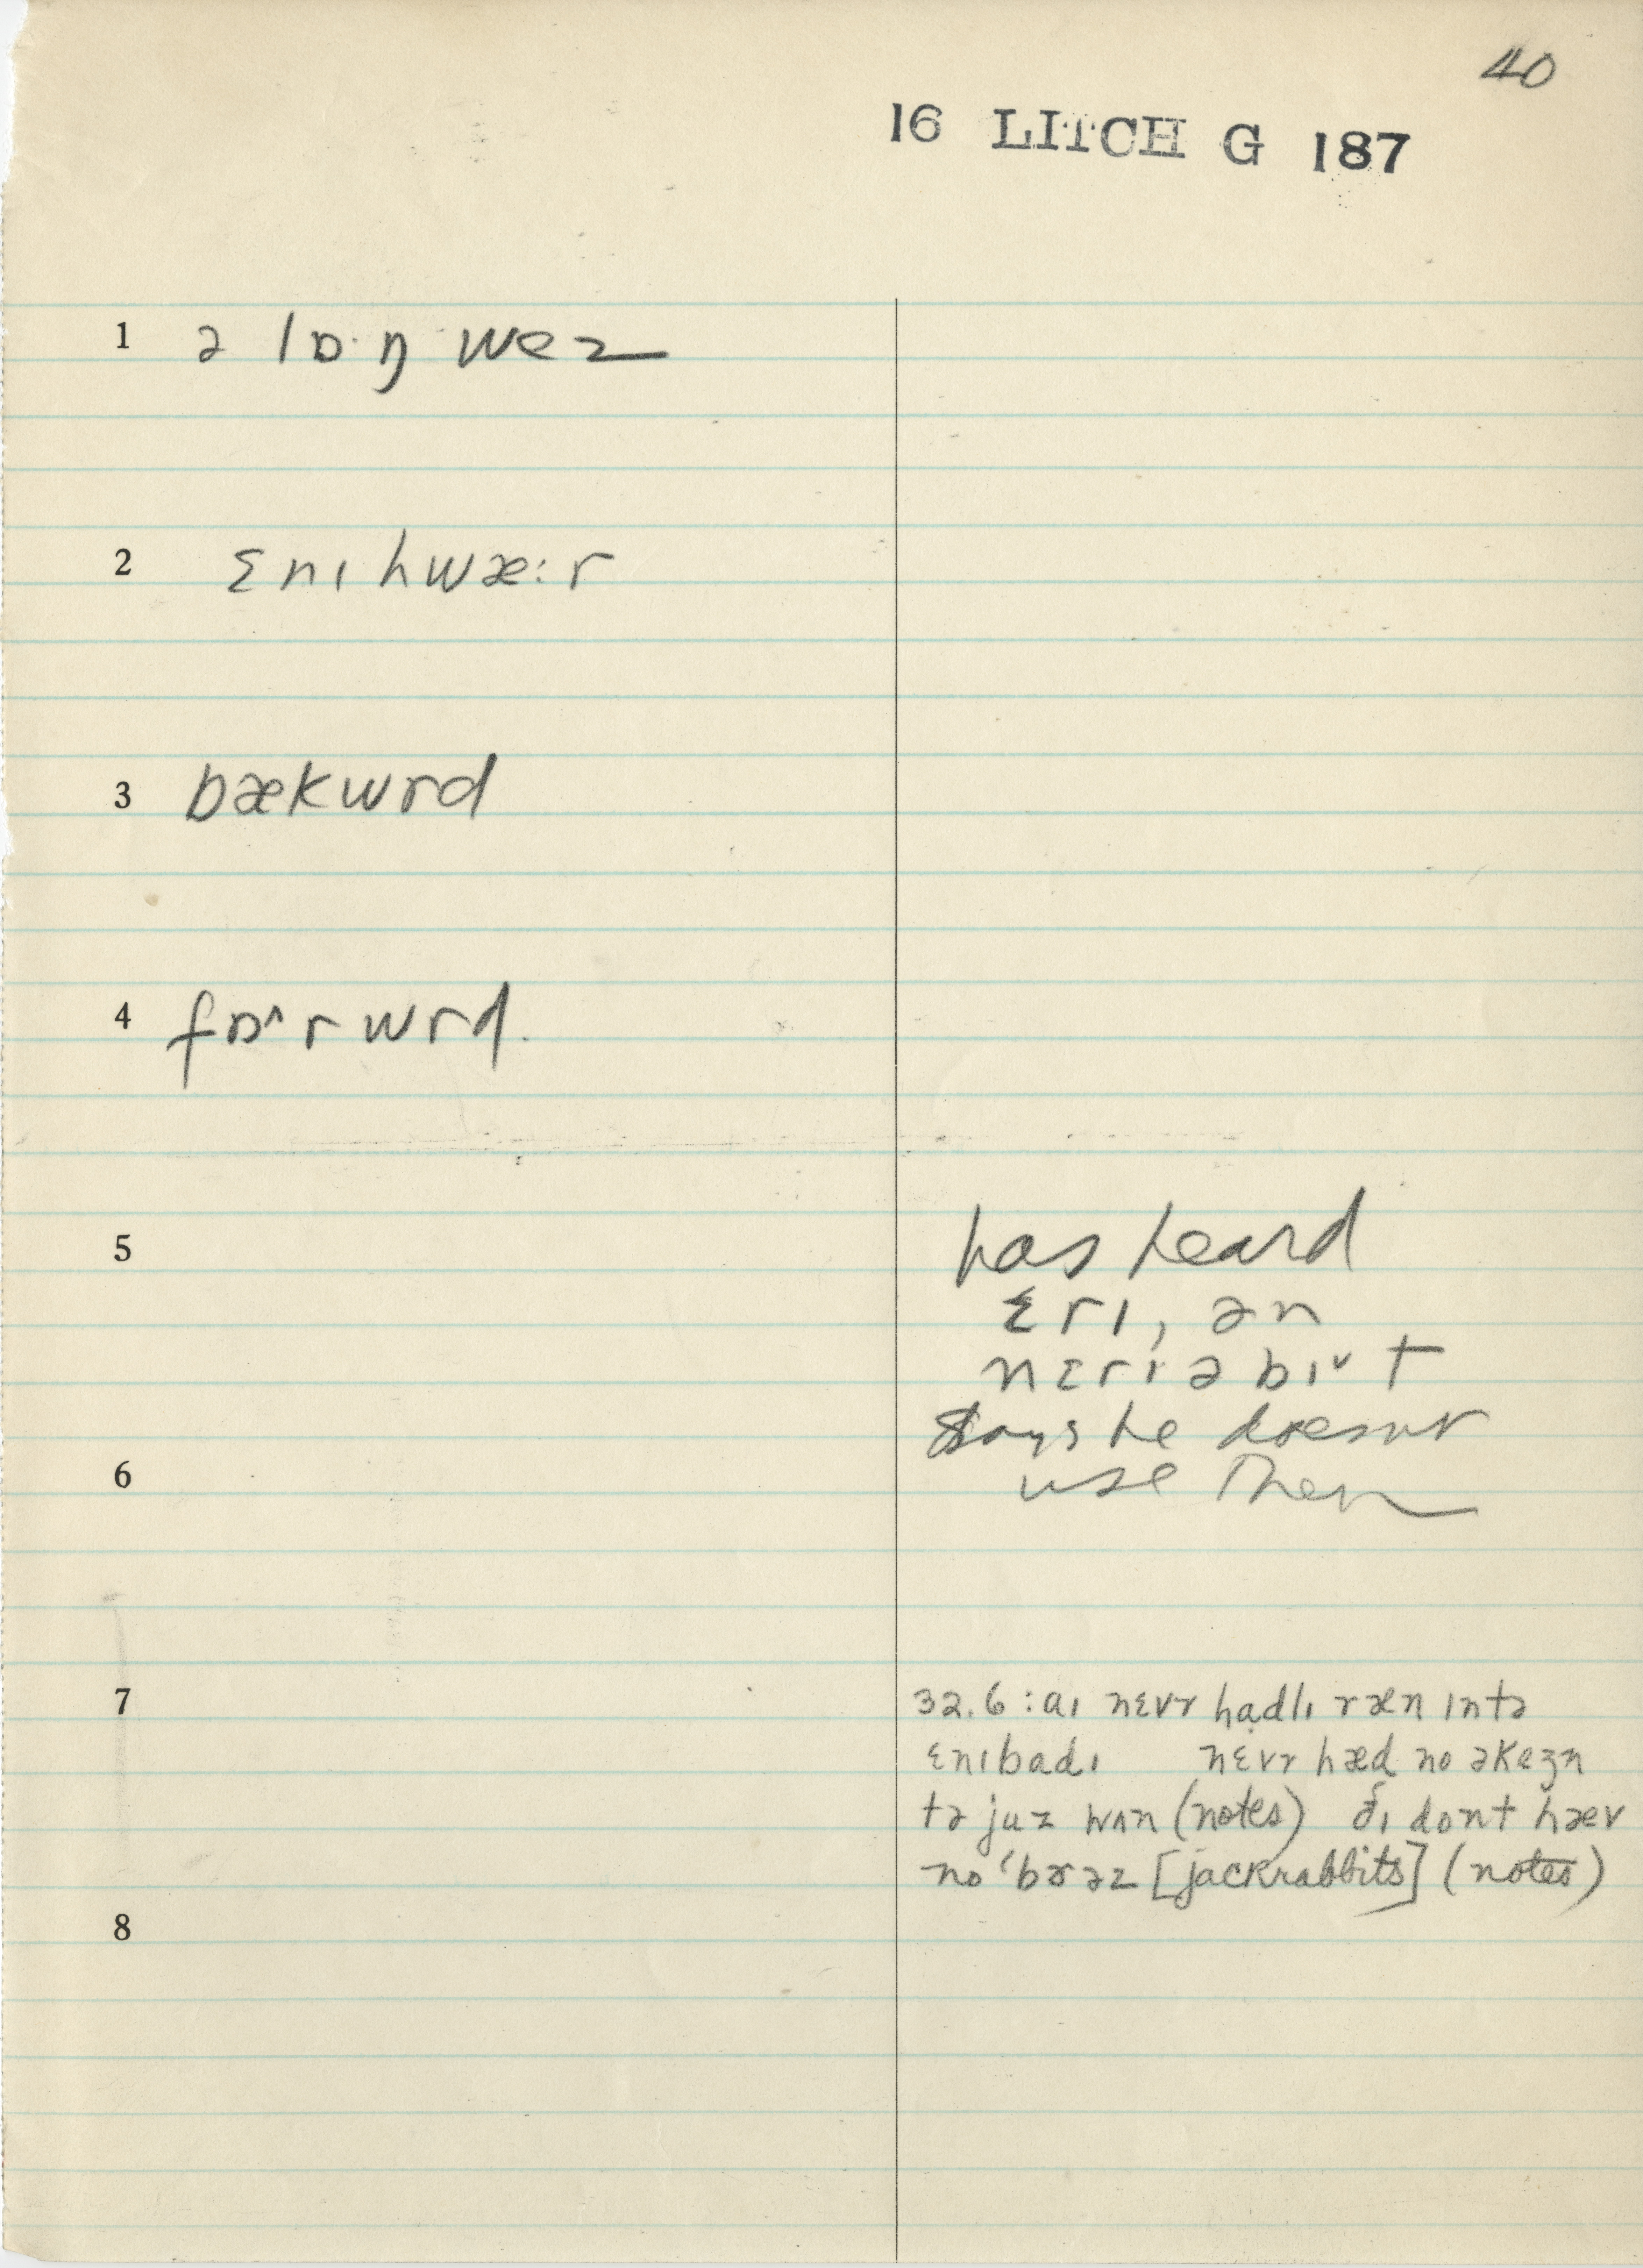 40
16 LITCH G 187
1 ə lɒ·ŋ wez
2 ɛnɪhwæ:r
3 bækwrd
4 fɒ˄rwrd.
5 has heard
ɛrɪ, ən
nɛrɪ ə bɪ˅t
Says he doesnt
6 use them
7 32.6 : aɪ nɛvr hạdlɪ ræn ɪntə
ɛnɪbadɪ nɛvr hæd no əkeʒn
tə juz wʌn (notes) ðɪ dont hæv
no 'bɤəz [jackrabbits] (notes)
8